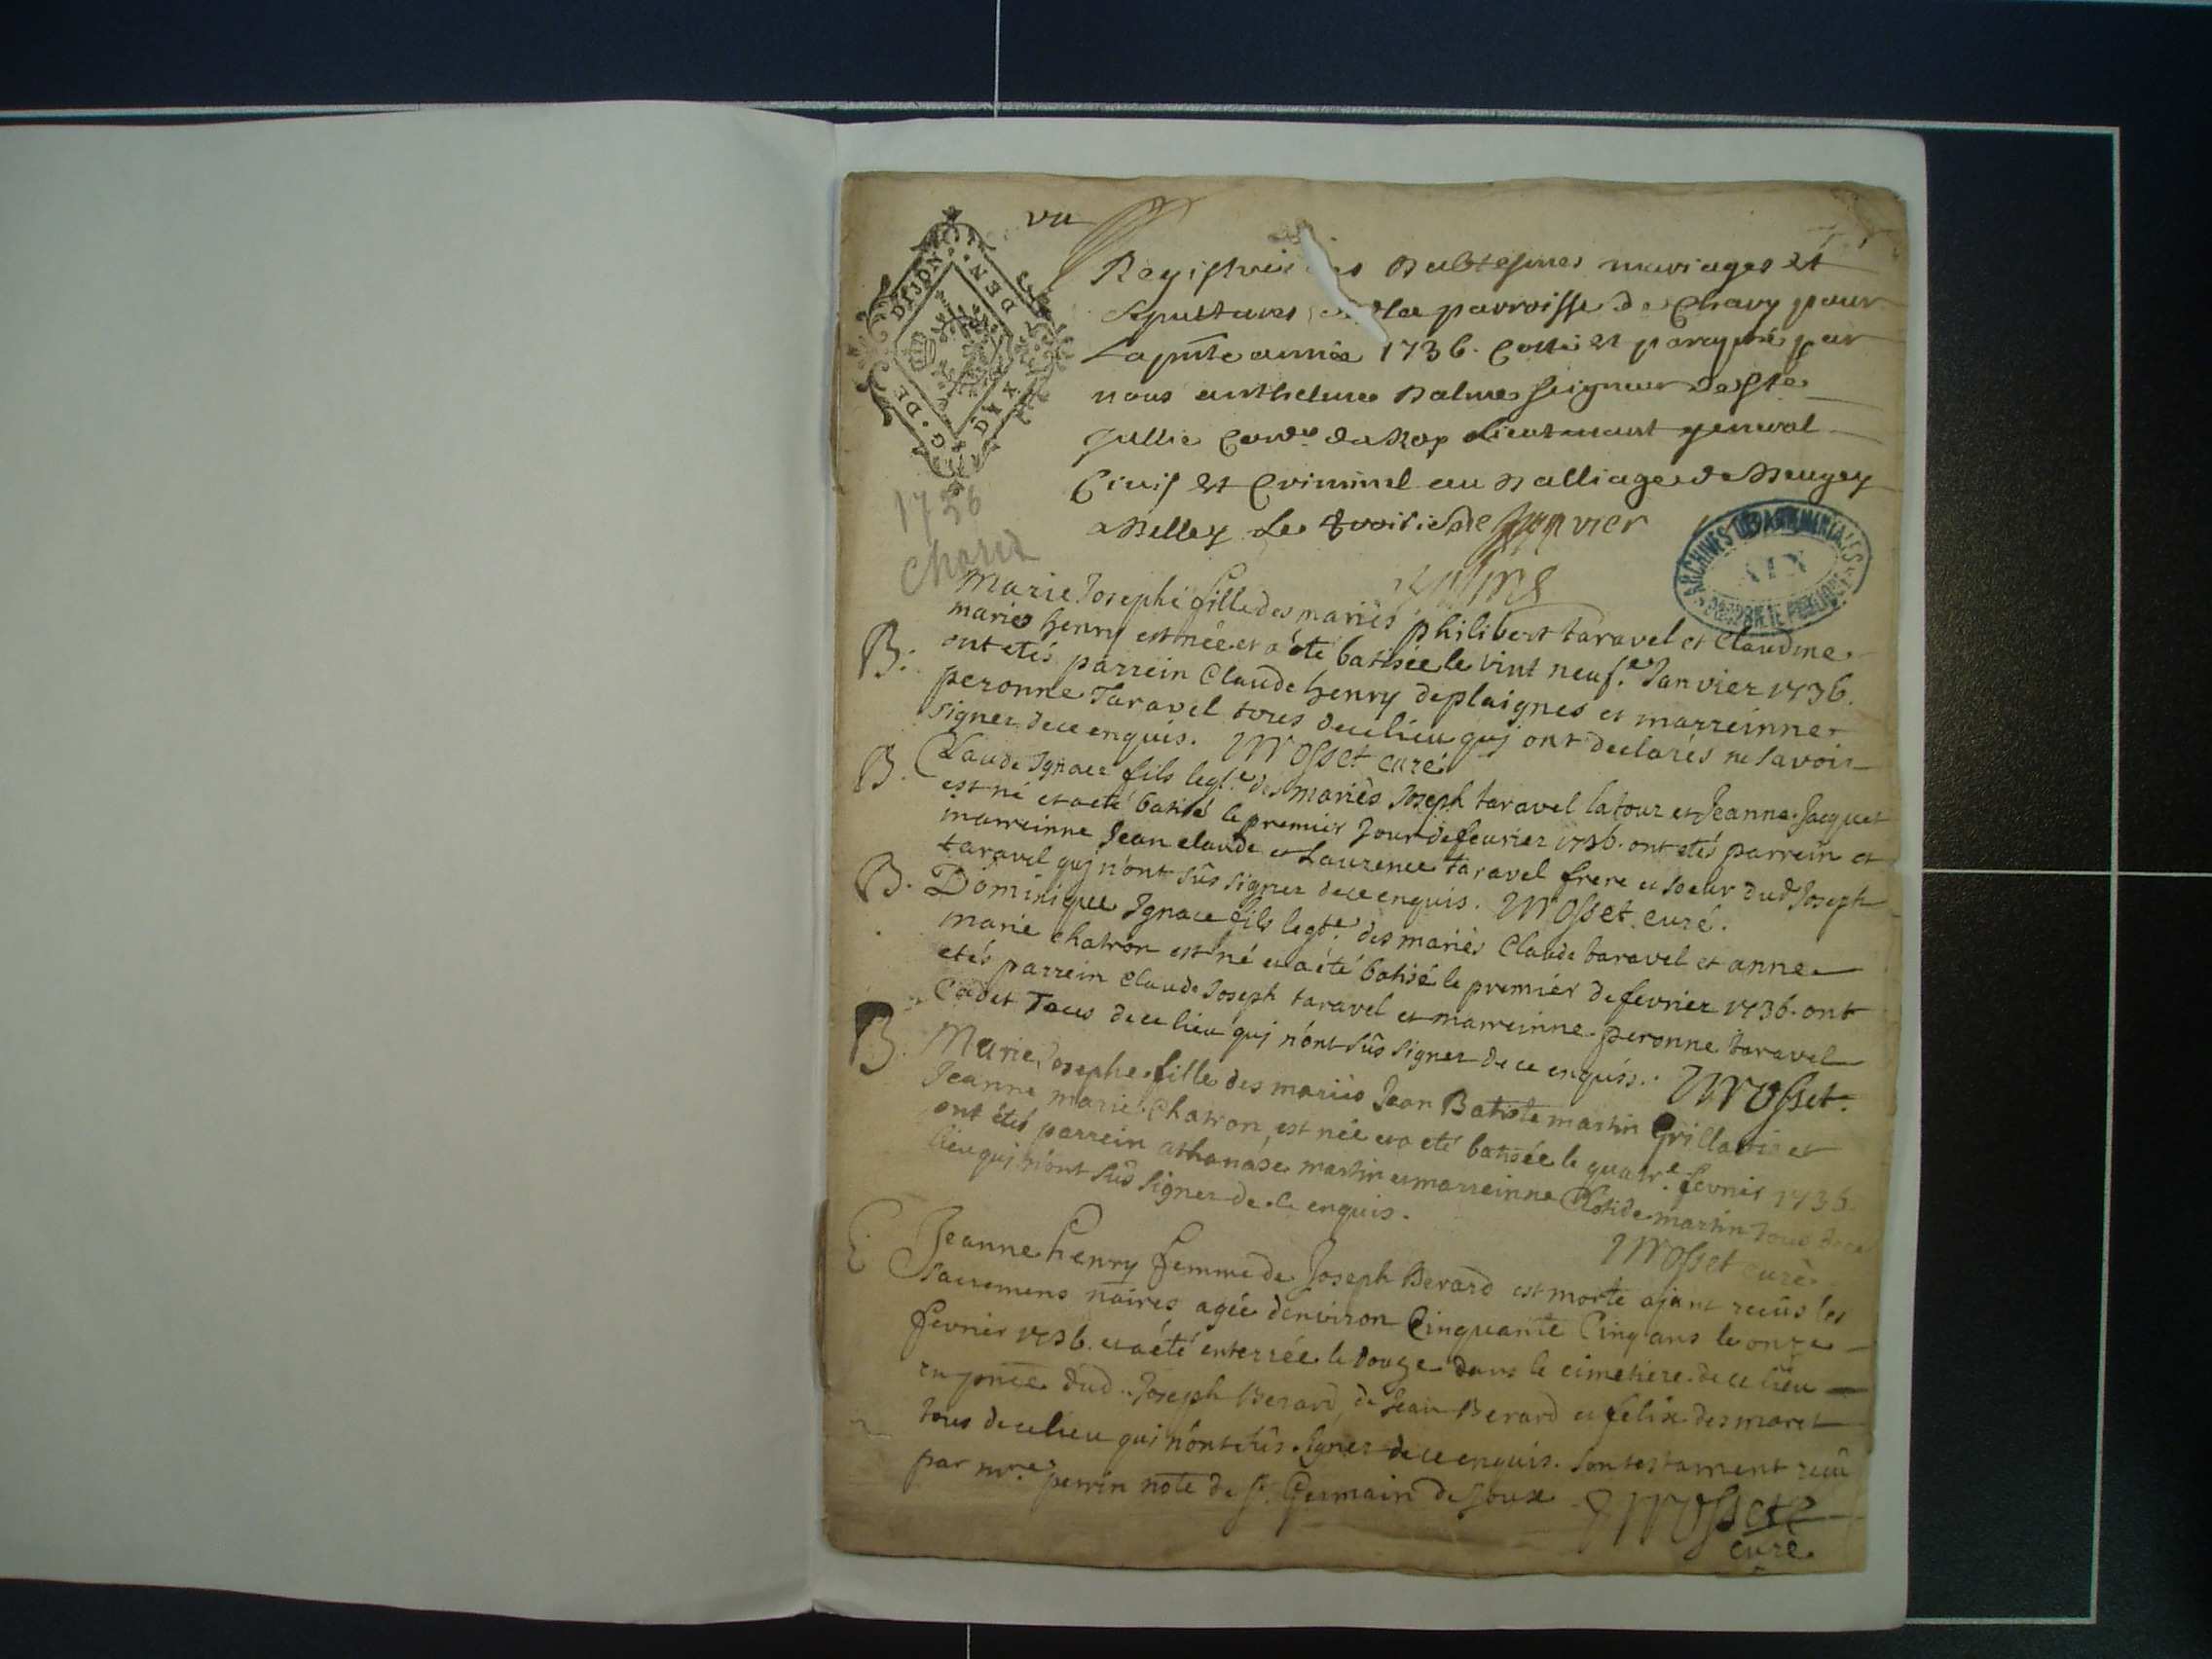 vu
G. DE DIJON. DEN.
Registre des Babtesmes mariages et
sepultures de la parroisse de Chary pour
La pnte année 1736. Cotté et paraphé par
nous anthelme Balme seigneur de Ste
Jullie Coner du Roy Lieutenant general
Civil et Criminel au Balliage de Beugey
a Belley Le troisie de Janvier
Balme
1736
Charix
ARCHIVES DEPARTEMENTALES
AIN
PROPRIETE PUBLIQUE
Marie Josephe fille des mariés philibert taravel et Claudine
marie henry est née et a été batisée le vint neuf.e Janvier 1736.
B. ont etés parrein Claude henry deplaignes et marreinne
peronne Taravel tous de ce lieu quj ont declarés ne savoir
signer de ce enquis. Mosset curé
B. Claude Ignace fils legt.e des mariés Joseph taravel latour et Jeanne Jacquet
est né et a eté batisé le premier Jour de feurier 1736. ont etés parrein et
marreinne Jean claude et Laurence taravel frere et soeur dud Joseph
taravel quj n'ont sûs signer de ce enquis. Mosset curé.
B. Dominique Ignace fils legt.e des mariés Claude taravel et anne
marie chatron est né et a été batisé le premiér de fevrier 1736. ont
etés parrein Claude Joseph taravel et marreinne peronne taravel
Cadet Tous de ce lieu quj n'ont sûs signer de ce enquis. Mosset.
B. Marie Josephe fille des mariés Jean Batiste martin Grillatié et
Jeanne marie Chatron, est née et a eté batisée le quatr.e fevrier 1736
ont étés parrein athanase martin et marreinne Clotide martin tous de ce
lieu quj n'ont sûs signer de ce enquis.
Mosset curé
E Jeanne henry femme de Joseph Berard est morte ajant reçûs les
sacremens naires agée d'environ Cinquante Cinq ans le onze
fevrier 1736. et a été enterrée le douze dans le cimetiere de ce lieu
en pnce dud. Joseph Berard, de Jean Berard et felix desmaret
tous de ce lieu qui n'ont sûs signer de ce enquis. son testament reçû
par mre perrin note de st. Germain de Joux Mosset
curé